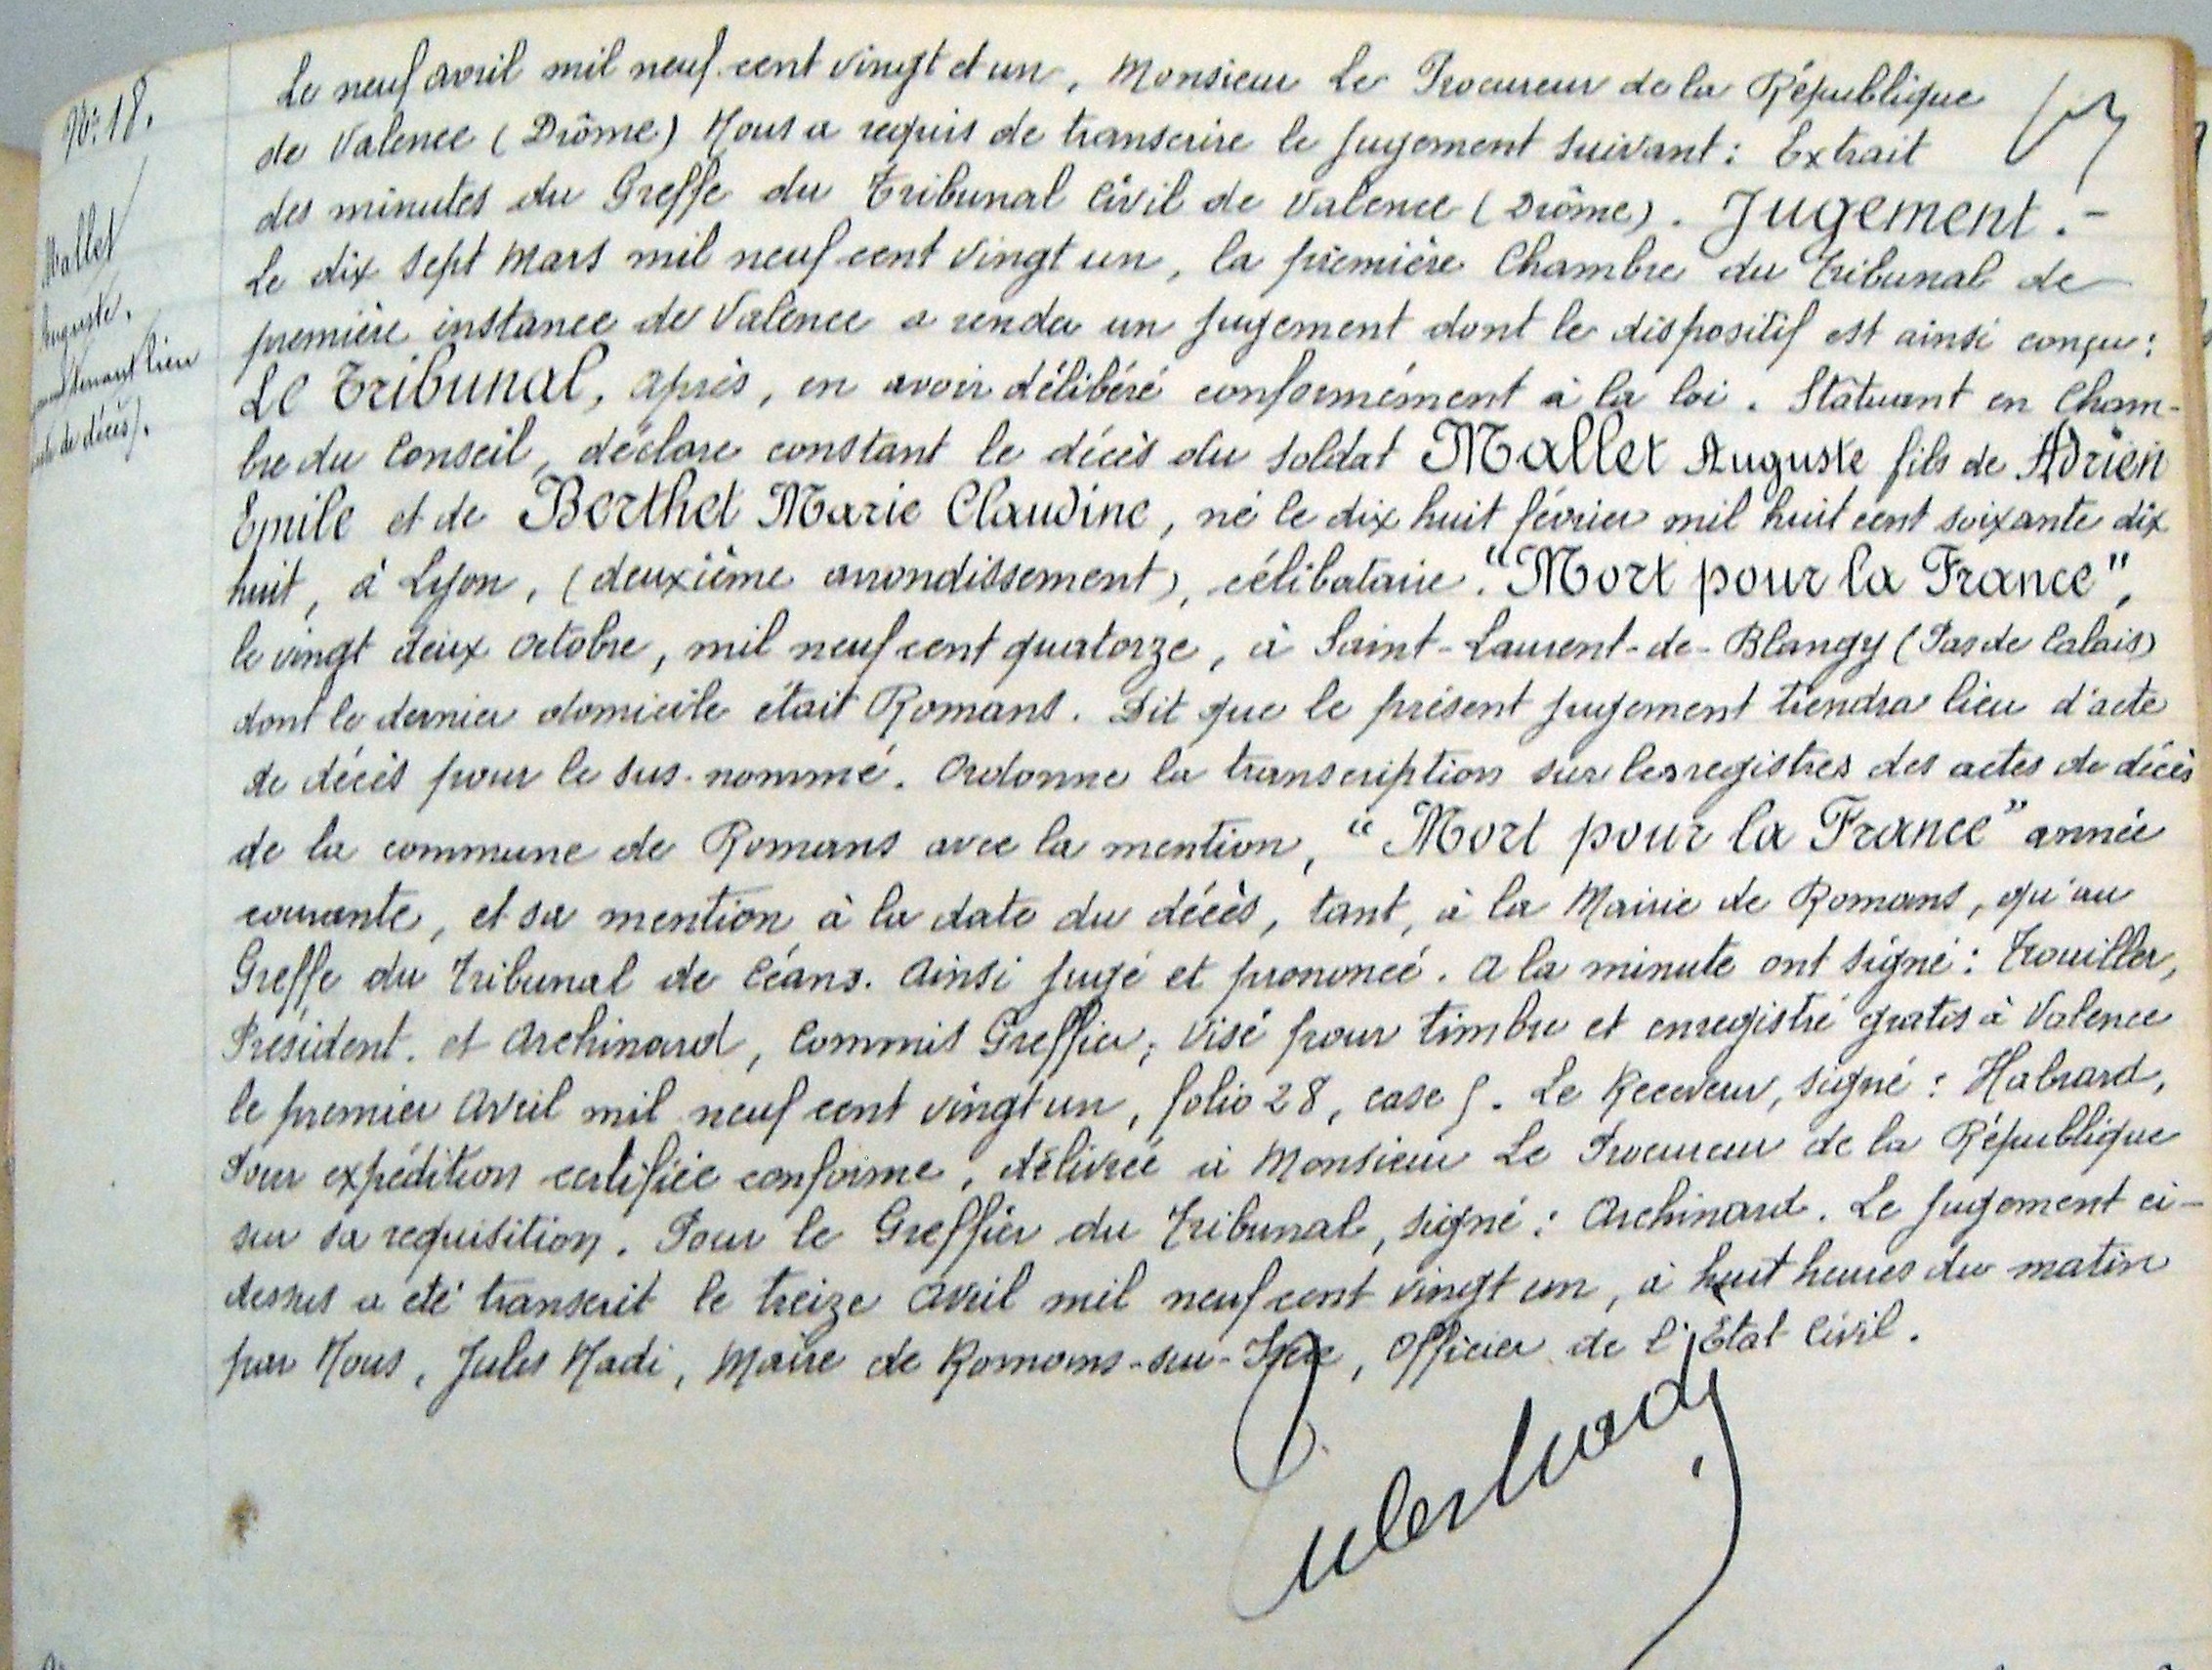 N: 18.
Mallet
Auguste.
tenant lieu
de décès).
Le neuf avril mil neuf cent vingt et un, Monsieur Le Procureur de la République
de Valence (Drôme) Nous a requis de transcrire le jugement suivant : Extrait
des minutes du Greffe du Tribunal Civil de Valence (Drôme). Jugement.-
Le dix sept Mars mil neuf cent vingt un, la première Chambre du Tribunal de
première instance de Valence a rendu un jugement dont le dispositif est ainsi conçu :
Le Tribunal, après, en avoir délibéré conformément à la loi. Statuant en Cham-
bre du Conseil, déclare constant le décès du soldat Mallet Auguste fils de Adrien
Emile et de Berthet Marie Claudine, né le dix huit février mil huit cent soixante dix
huit, à Lyon, (deuxième arrondissement), célibataire. "Mort pour la France",
le vingt deux octobre, mil neuf cent quatorze, à Saint-Laurent-de-Blangy (Pas de Calais)
dont le dernier domicile était Romans. Dit que le présent jugement tiendra lieu d'acte
de décès pour le sus-nommé. Ordonne la transcription sur les registres des actes de décès
de la commune de Romans avec la mention, "Mort pour la France" année
courante, et sa mention à la date du décès, tant, à la Mairie de Romans, qu'au
Greffe du Tribunal de Céans. Ainsi jugé et prononcé. A la minute ont signé : Trouiller,
Président. et Archinard, Commis Greffier, Visé pour timbre et enregistré gratis à Valence
le premier Avril mil neuf cent vingt un, folio 28, case . Le Receveur, signé : Habrard,
Pour expédition certifiée conforme, délivrée à Monsieur Le Procureur de la République
sur sa requisition. Pour le Greffier du Tribunal, signé : Archinard. Le jugement ci-
dessus a été transcrit le treize Avril mil neuf cent vingt un, à huit heures du matin
par Nous, Jules Nadi, Maire de Romans-sur-Isère, Officier de l'Etat Civil.
Jules Nadi